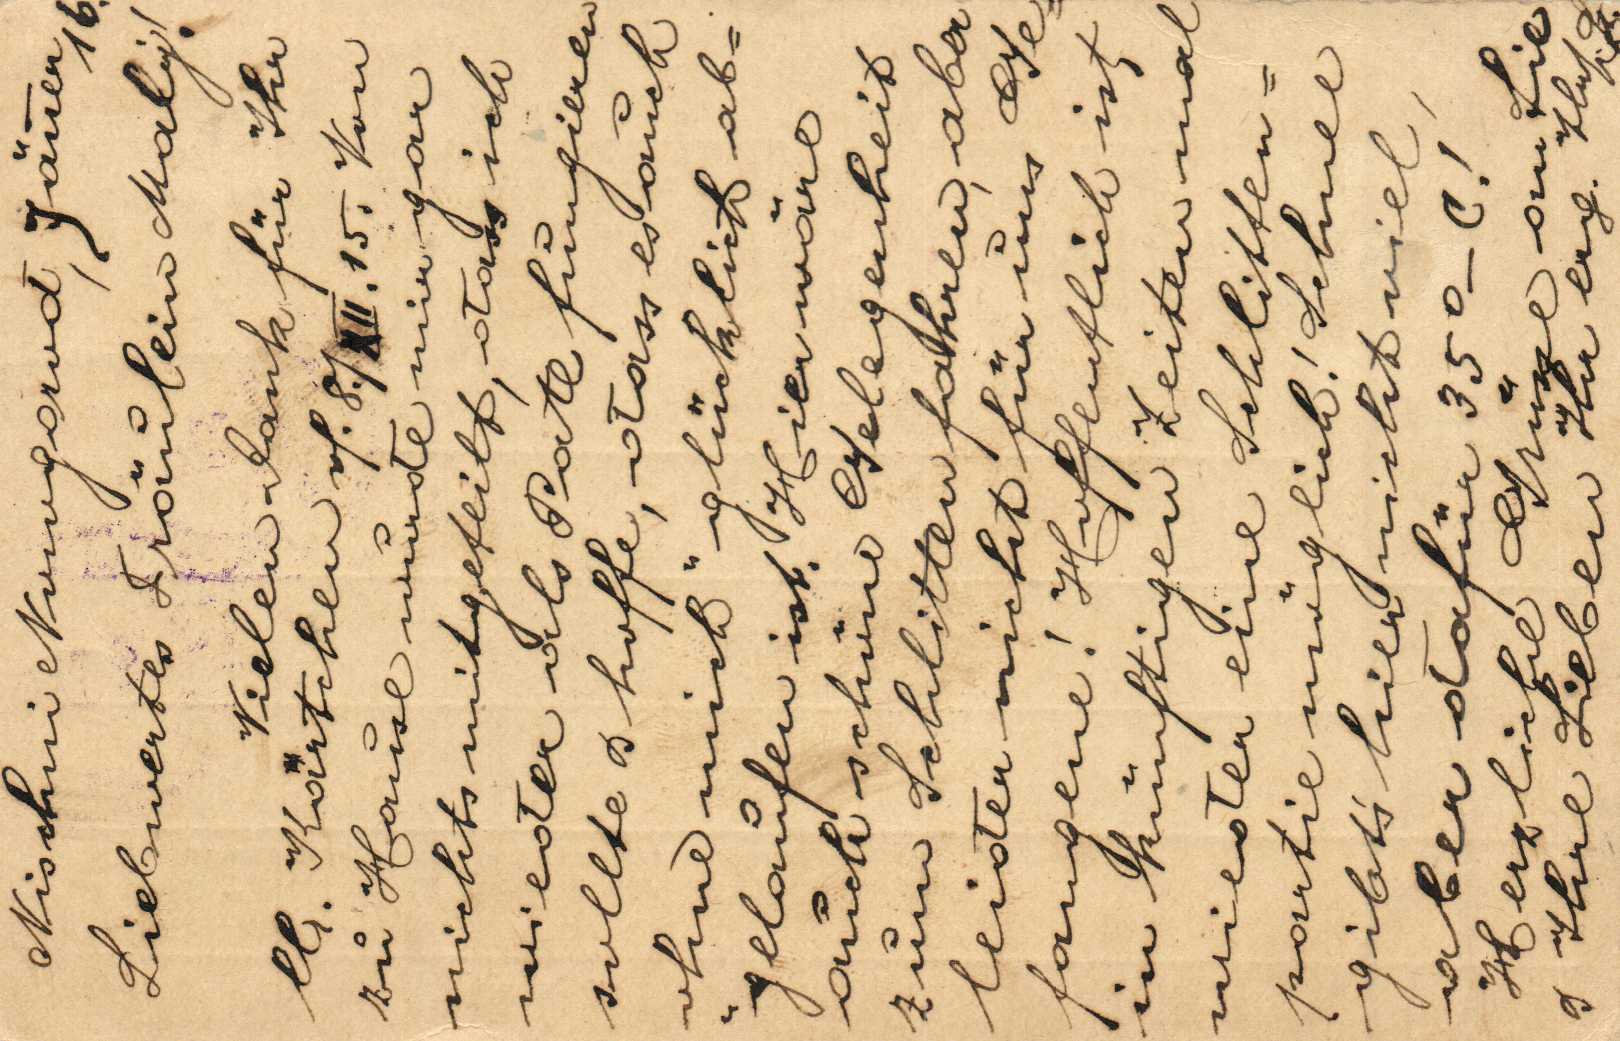 Nischni Nowgorod, Jäner
16.
Liebwertes Fräulein Maly!
Vielen Dank für Ihr
lb. Kärtchen v. 8./XII.15. Von
zu Hause wurde mir gar
nichts mitgeteilt, dass ich
wieder als Pate fungieren
sollte & hoffe, dass es auch
ohne mich "glücklich ab=
"gelaufen ist. Hier wäre
auch schöne Gelegenheit
zum Schlitten fahren, aber
leider nicht für uns Ge=
fangene! Hoffentlich ist
in künftigen Zeiten mal
wieder eine Schlitten=
partie möglich! Schnee
gibts hier nicht viel,
aber dafür 35 0 – C!
Herzliche Grüsse an Sie
& Ihre Lieben Ihr erg.